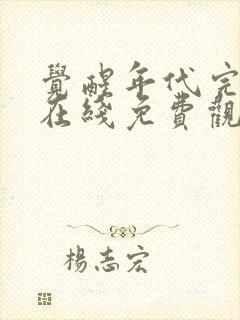 覺醒年代完
在綫免費觀
楊志宏